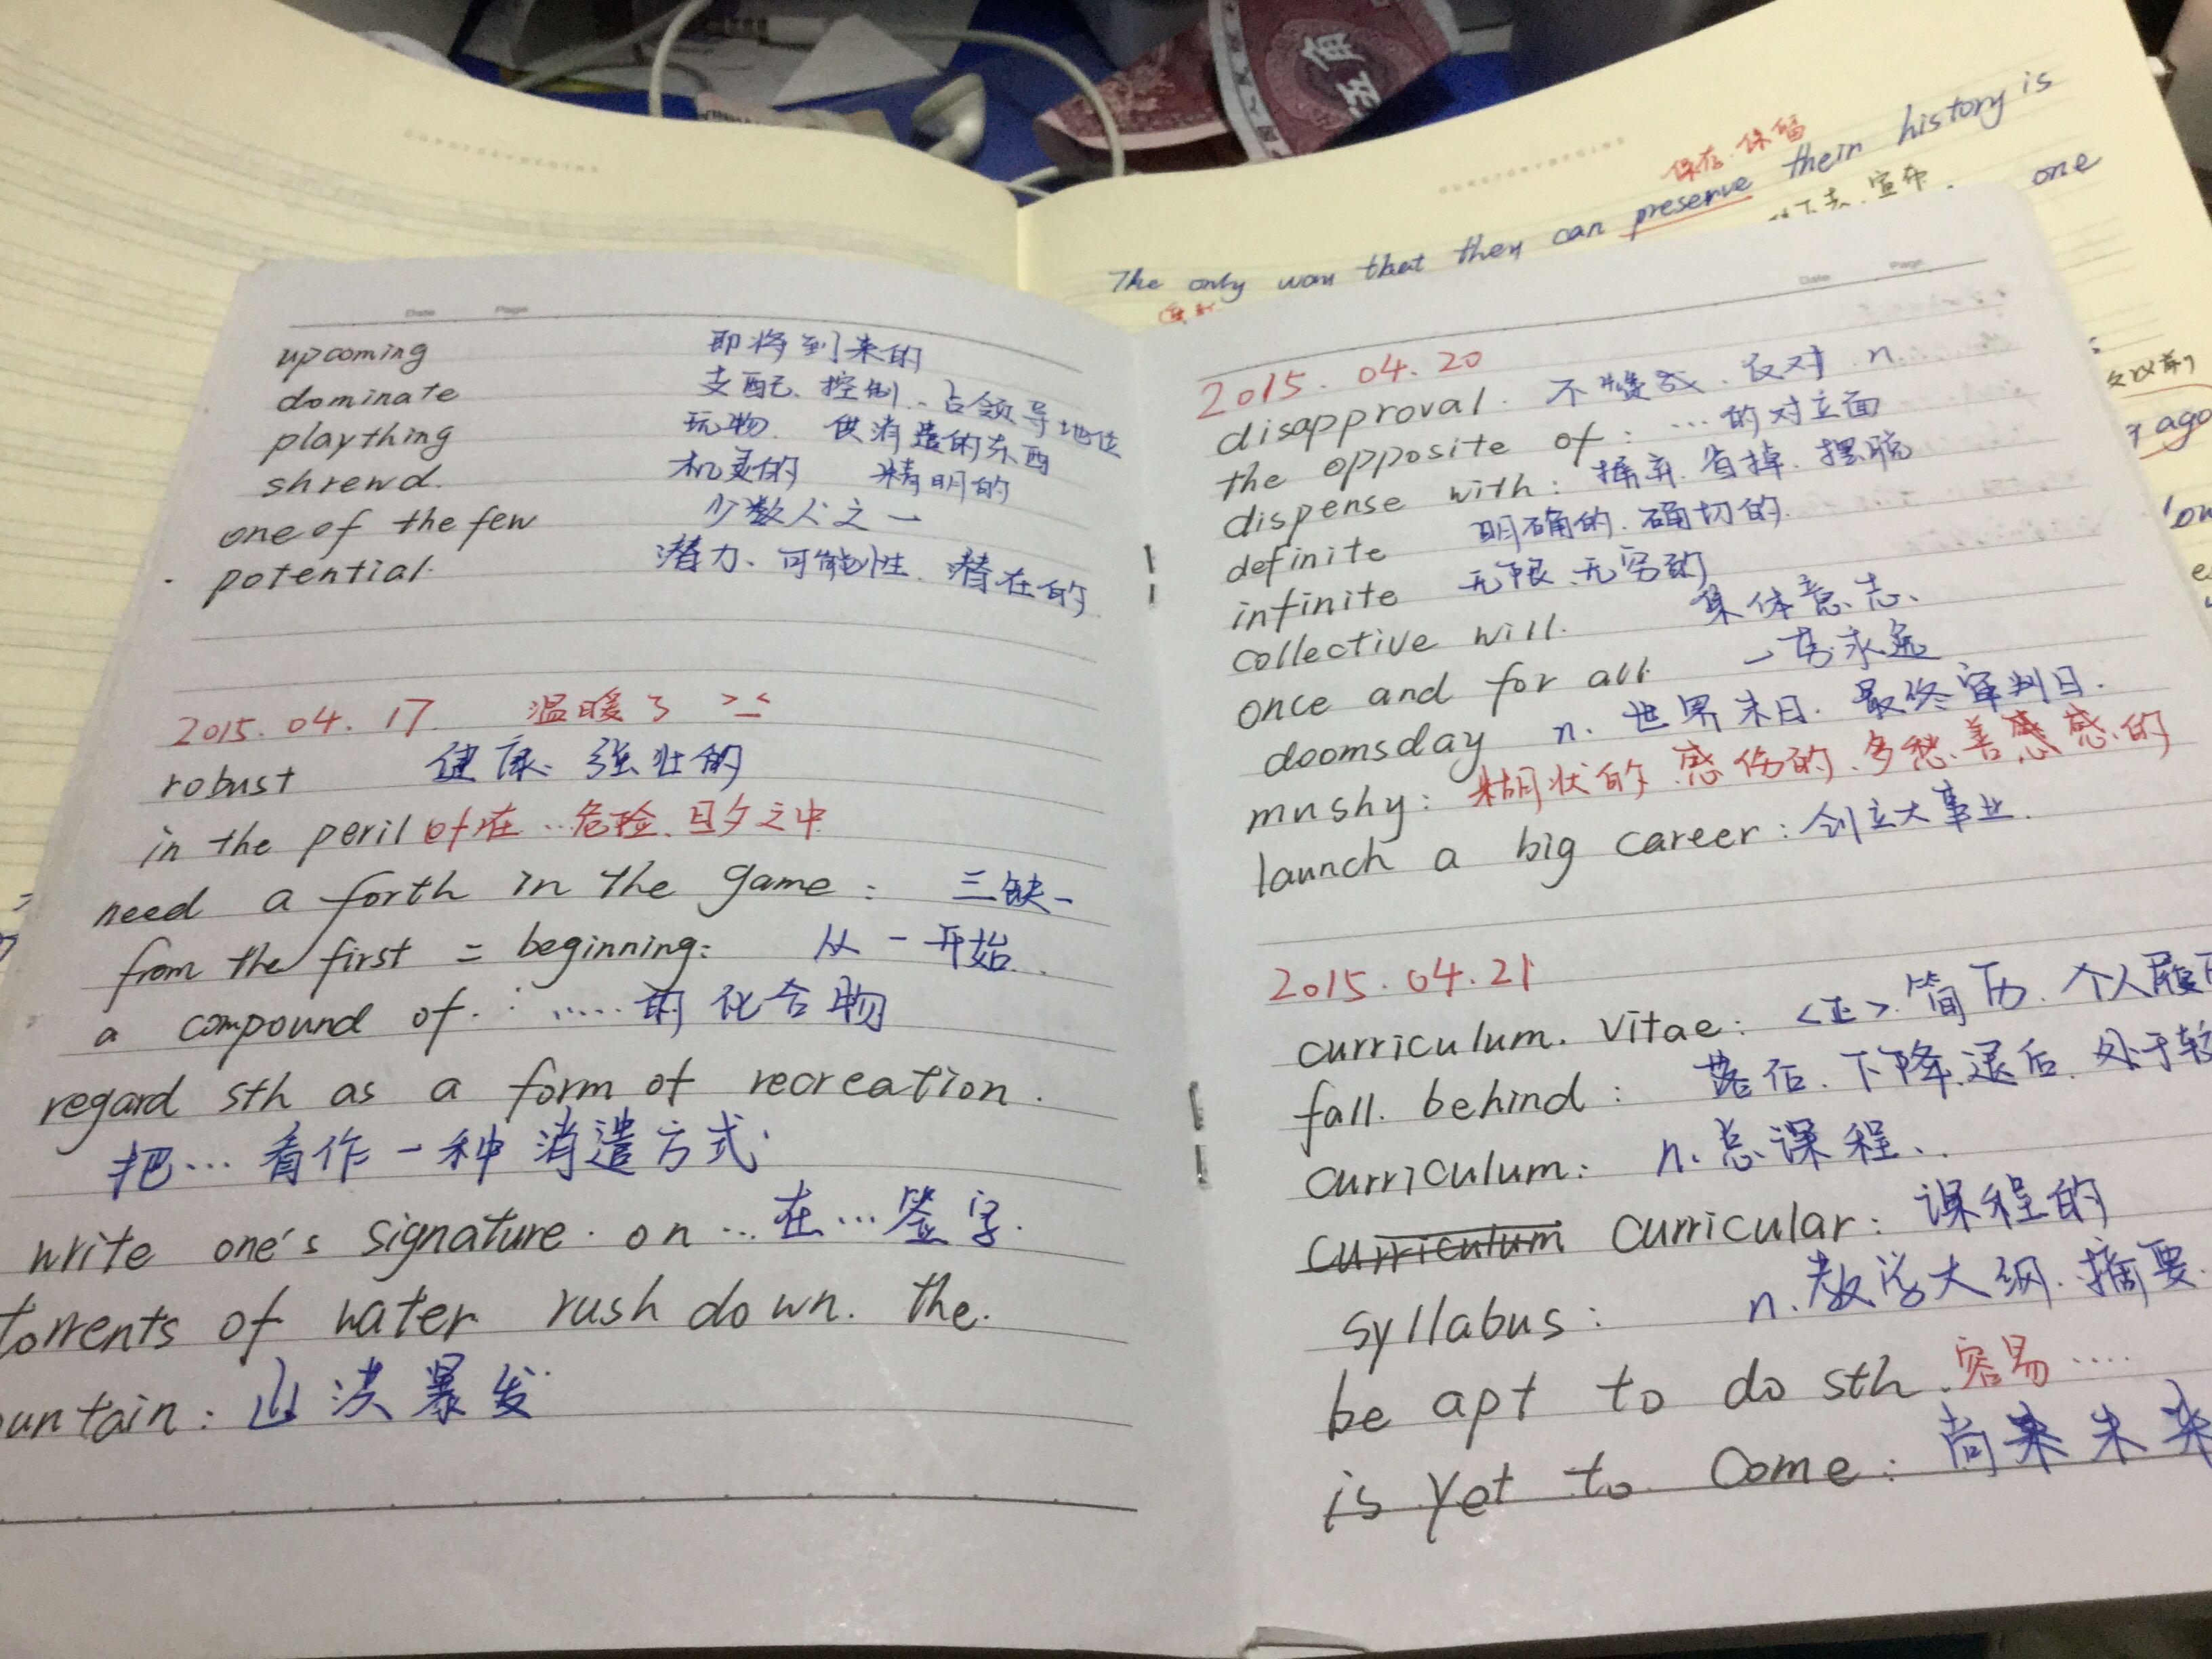 五角
保存.保留
The only way that they can preserve their history is
宣布. one
ago
Date Page
upcoming 即将到来的
dominate 支配、控制、占领导地位
plaything 玩物. 供消遣的东西
shrewd. 机灵的 精明的
one of the few 少数人之一
potential. 潜力、可能性、潜在的
2015.04.17. 温暖了
robust 健康、强壮的
in the peril of 在…危险、旦夕之中
need a forth in the game: 三缺一
from the first = beginning: 从一开始.
a compound of: ……的化合物
regard sth as a form of recreation.
把…看作一种消遣方式.
write one's signature. on …在…签字.
torrents of water rush down. the.
untain: 山洪暴发
Date Page
2015.04.20
disapproval. 不赞成.反对 n.
the opposite of: …的对立面
dispense with: 摒弃.省掉.摆脱
definite 明确的.确切的.
infinite 无限、无穷的
collective will. 集体意志、
once and for all. 一劳永逸
doomsday n. 世界末日.最终审判日.
mushy: 糊状的.感伤的.多愁善感的
launch a big career: 创立大事业.
2015.04.21
curriculum. vitae: <正>.简历.个人履历
fall. behind: 落后.下降.退后.处于较
curriculum: n.总课程、
curriculum curricular: 课程的
syllabus: n.教学大纲.摘要.
be apt to do sth.容易….
is yet to come: 尚未来